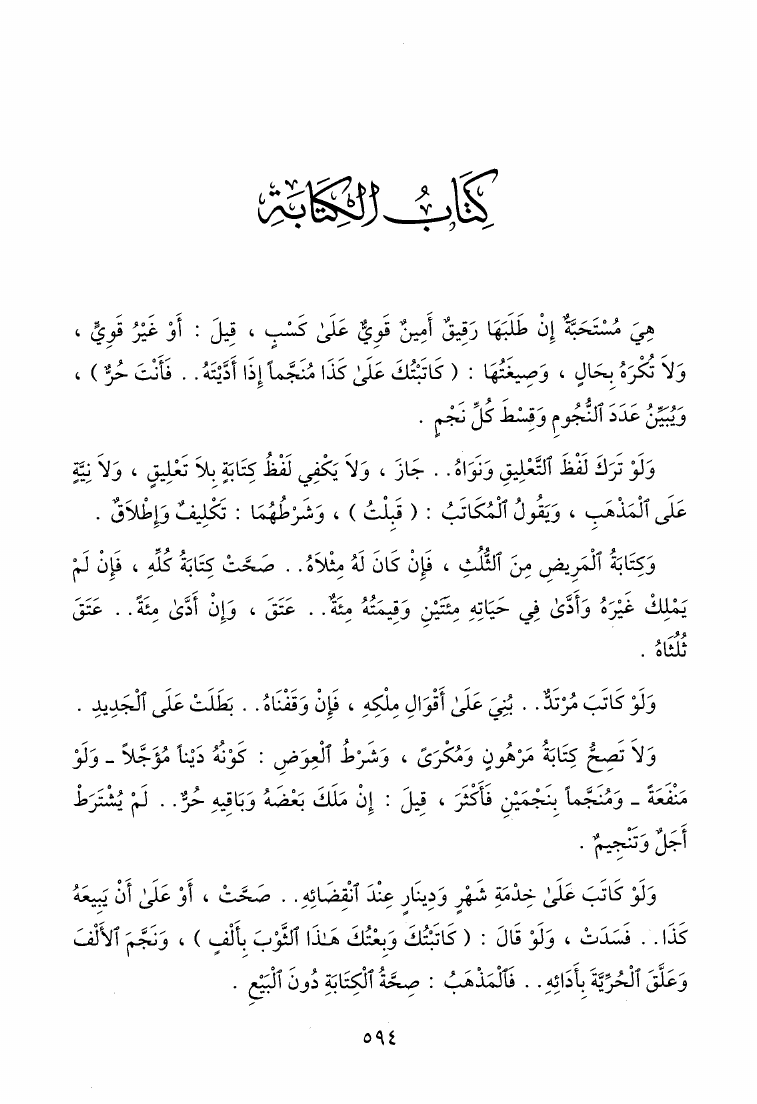 كِتَابُ الكِتَابَةِ
هِيَ مُسْتَحَبَّةٌ إِنْ طَلَبَهَا رَقِيقٌ أَمِينٌ قَوِيٌّ عَلَىٰ كَسْبٍ ، قِيلَ : أَوْ غَيْرُ قَوِيٍّ ،
وَلاَ تُكْرَهُ بِحَالٍ ، وَصِيغَتُهَا : ( كَاتَبْتُكَ عَلَىٰ كَذَا مُنَجَّماً إِذَا أَدَّيْتَهُ . . فَأَنْتَ حُرٌّ ) ،
وَيُبَيِّنُ عَدَدَ ٱلنُّجُومِ وَقِسْطَ كُلِّ نَجْمٍ .
وَلَوْ تَرَكَ لَفْظَ ٱلتَّعْلِيقِ وَنَوَاهُ . . جَازَ ، وَلاَ يَكْفِي لَفْظُ كِتَابَةٍ بِلاَ تَعْلِيقٍ ، وَلاَ نِيَّةٍ
عَلَى ٱلْمَذْهَبِ ، وَيَقُولُ ٱلْمُكَاتَبُ : ( قَبِلْتُ ) ، وَشَرْطُهُمَا : تَكْلِيفٌ وَإِطْلاَقٌ .
وَكِتَابَةُ ٱلْمَرِيضِ مِنَ ٱلثُّلُثِ ، فَإِنْ كَانَ لَهُ مِثْلاَهُ . . صَحَّتْ كِتَابَةُ كُلِّهِ ، فَإِنْ لَمْ
يَمْلِكْ غَيْرَهُ وَأَدَّىٰ فِي حَيَاتِهِ مِئَتَيْنِ وَقِيمَتُهُ مِئَةٌ . . عَتَقَ ، وَإِنْ أَدَّىٰ مِئَةً . . عَتَقَ
ثُلُثَاهُ .
وَلَوْ كَاتَبَ مُرْتَدٌّ . . بُنِيَ عَلَىٰ أَقْوَالِ مِلْكِهِ ، فَإِنْ وَقَفْنَاهُ . . بَطَلَتْ عَلَى ٱلْجَدِيدِ .
وَلاَ تَصِحُّ كِتَابَةُ مَرْهُونٍ وَمُكْرَىً ، وَشَرْطُ ٱلْعِوَضِ : كَوْنُهُ دَيْناً مُؤَجَّلاً ـ وَلَوْ
مَنْفَعَةً ـ وَمُنَجَّماً بِنَجْمَيْنِ فَأَكْثَرَ ، قِيلَ : إِنْ مَلَكَ بَعْضَهُ وَبَاقِيهِ حُرٌّ . . لَمْ يُشْتَرَطْ
أَجَلٌ وَتَنْجِيمٌ .
وَلَوْ كَاتَبَ عَلَىٰ خِدْمَةِ شَهْرٍ وَدِينَارٍ عِنْدَ ٱنْقِضَائِهِ . . صَحَّتْ ، أَوْ عَلَىٰ أَنْ يَبِيعَهُ
كَذَا . . فَسَدَتْ ، وَلَوْ قَالَ : ( كَاتَبْتُكَ وَبِعْتُكَ هَـٰذَا ٱلثَّوْبَ بِأَلْفٍ ) ، وَنَجَّمَ ٱلأَلْفَ
وَعَلَّقَ ٱلْحُرِّيَّةَ بِأَدَائِهِ . . فَٱلْمَذْهَبُ : صِحَّةُ ٱلْكِتَابَةِ دُونَ ٱلْبَيْعِ .
٥٩٤